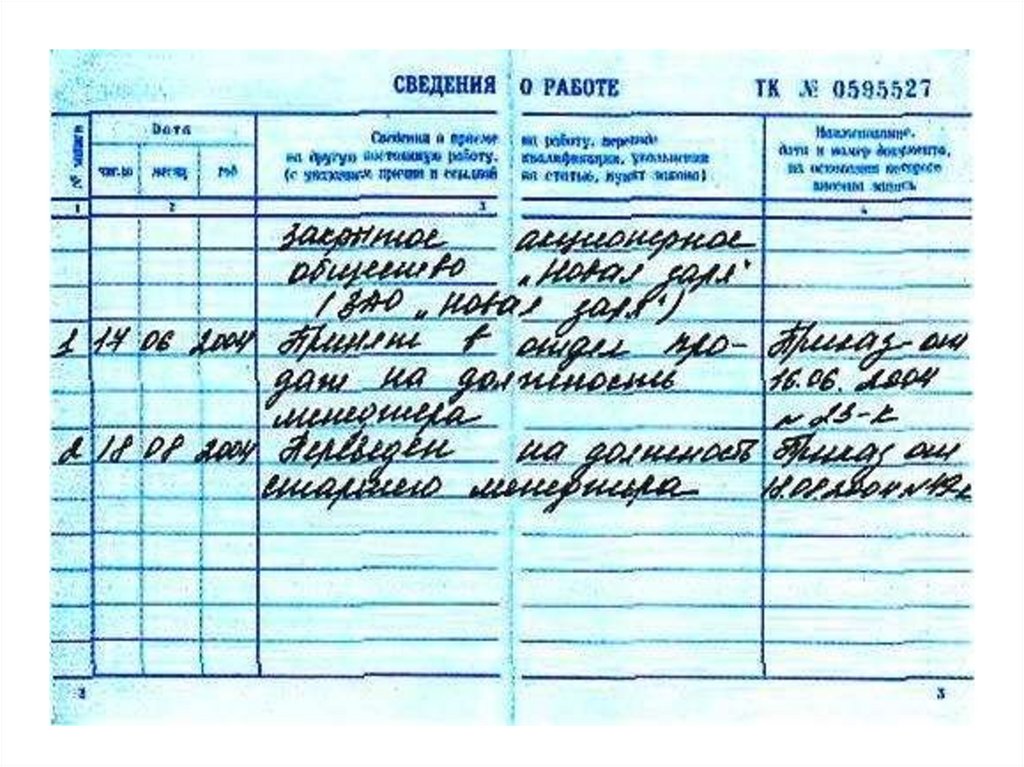 СВЕДЕНИЯ О РАБОТЕ ТК № 0595527
№ записи
Дата
число месяц год
Сведения о приеме на работу, переводе
на другую постоянную работу, квалификации, увольнении
(с указанием причин и ссылкой на статью, пункт закона)
Наименование,
дата и номер документа,
на основании которого
внесена запись
1 2 3 4
закрытое акционерное
общество „Новая заря"
(ЗАО „Новая заря")
1 17 06 2004 Принят в отдел про- Приказ от
даж на должность 16.06.2004
менеджера № 23-к
2 18 08 2004 Переведен на должность Приказ от
старшего менеджера 18.08.2004 №
3